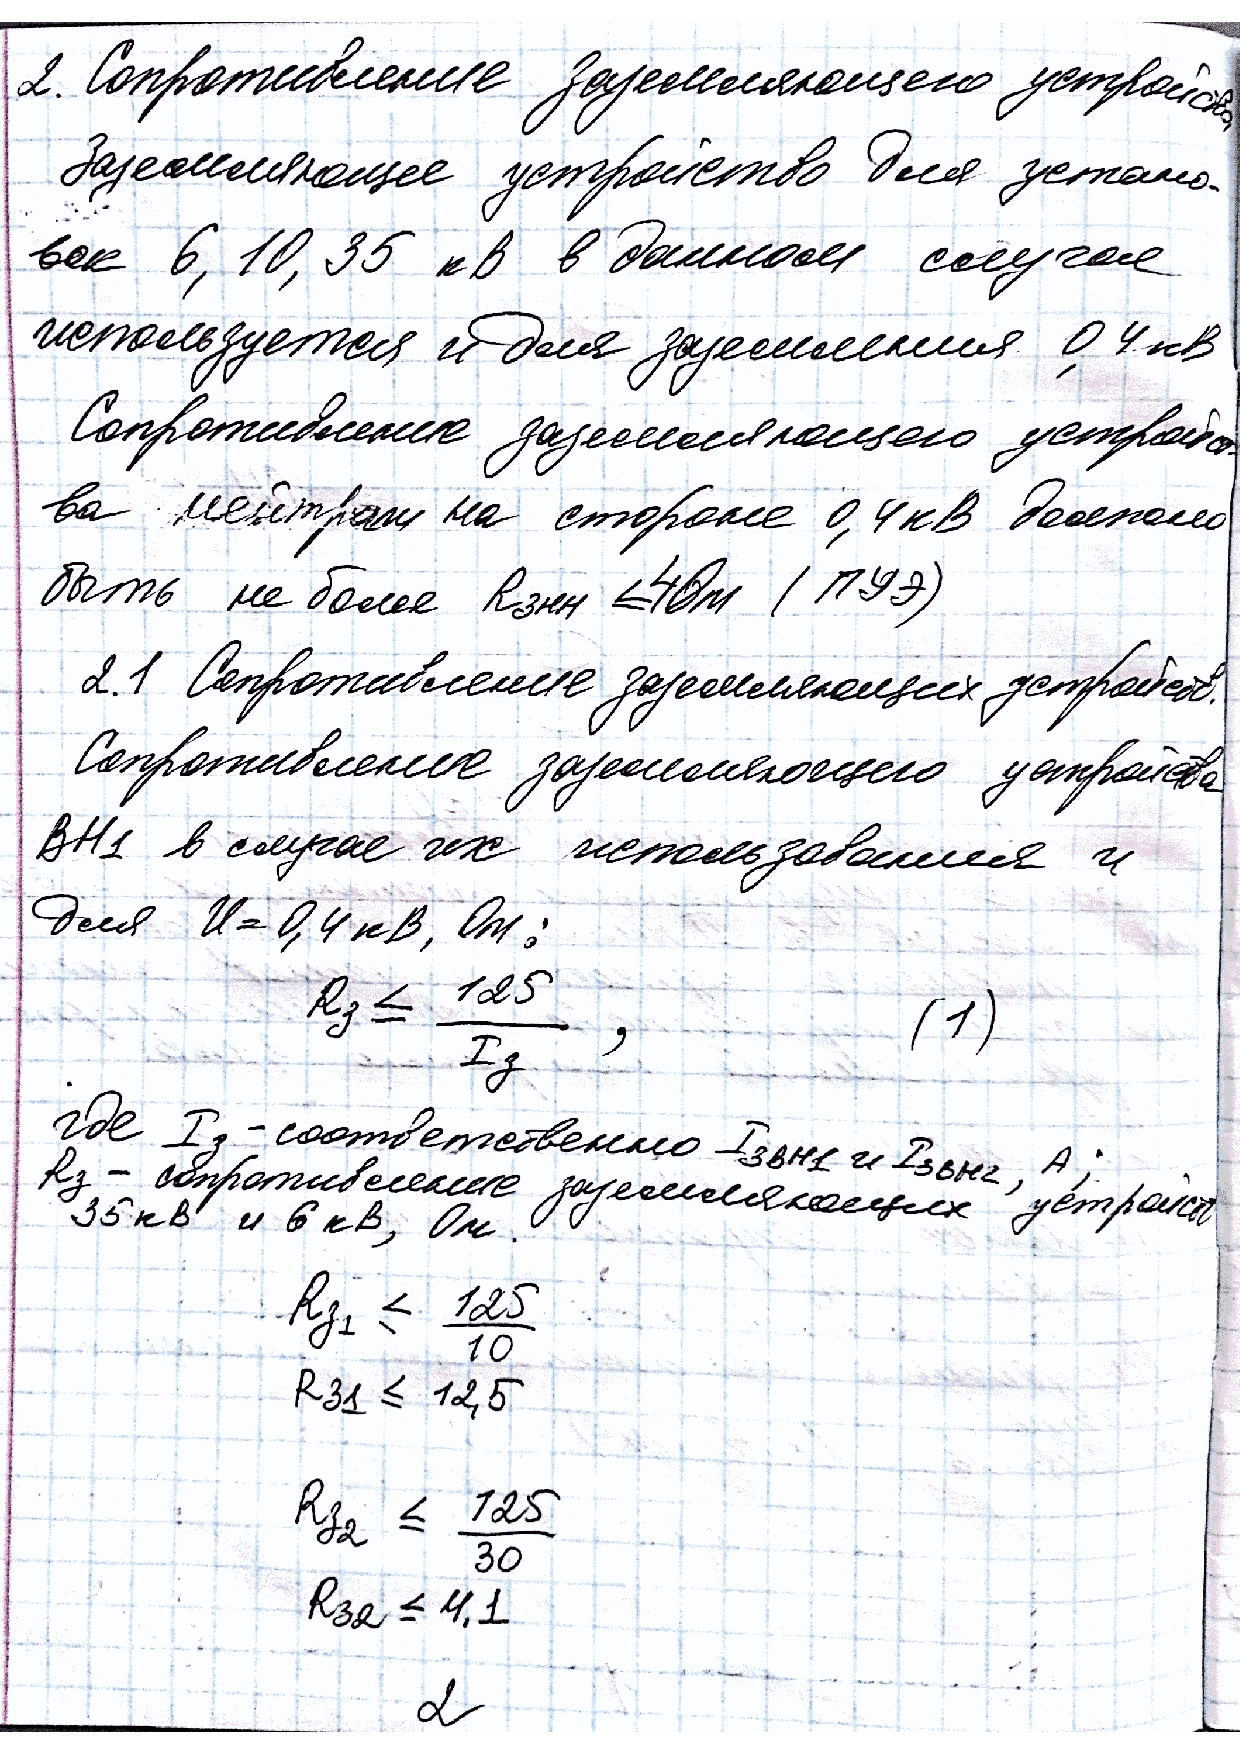 2. Сопротивление заземляющего устройства
Заземляющее устройство для устано-
вок 6, 10, 35 кВ в данном случае
используется и для заземления 0,4 кВ
Сопротивление заземляющего устройст-
ва нейтрали на стороне 0,4 кВ должно
быть не более Rзнн ≤ 4 Ом (ПУЭ)
2.1 Сопротивление заземляющих устройств.
Сопротивление заземляющего устройства
ВН1 в случае их использования и
для U = 0,4 кВ, Ом:
Rз ≤ 125/Iз , (1)
где Iз - соответственно Iзвн1 и Iзвн2, А;
Rз - сопротивление заземляющих устройств
35 кВ и 6 кВ, Ом.
Rз1 ≤ 125/10
Rз1 ≤ 12,5
Rз2 ≤ 125/30
Rз2 ≤ 4.1
2